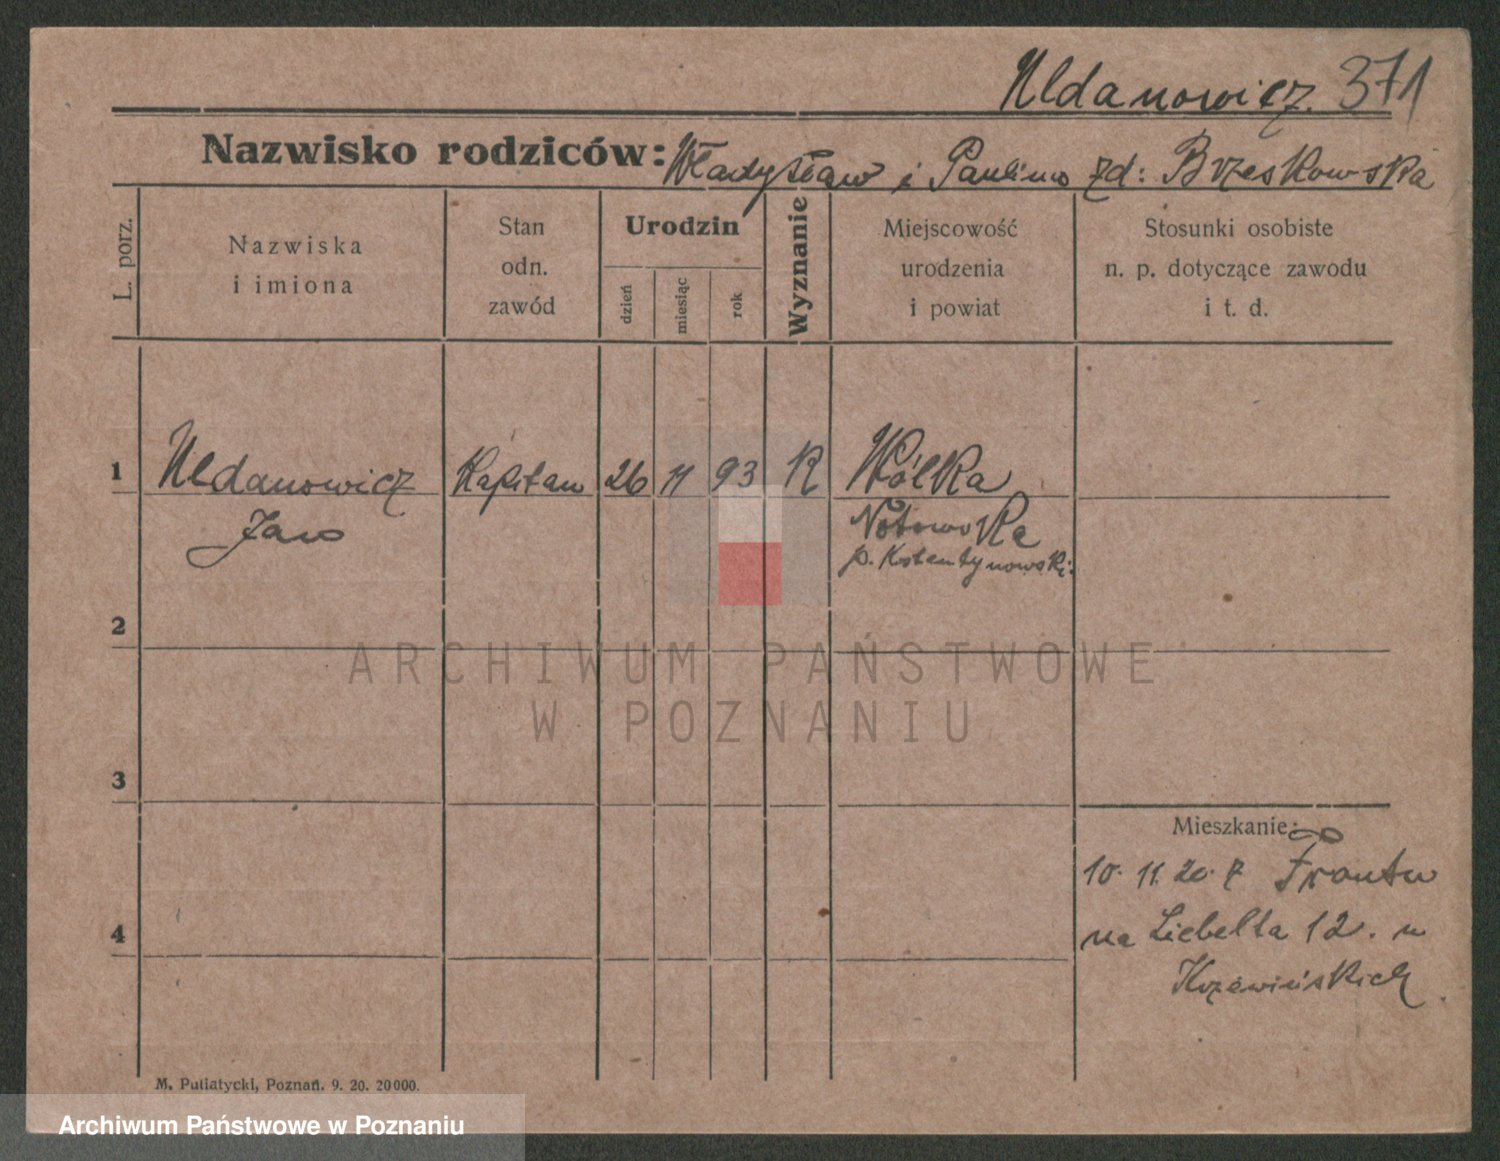 Uldanowicz. 371
Nazwisko rodziców: Władysław i Paulina zd: Brzeskowska
L. porz.
Nazwiska
i imiona
Stan
odn.
zawód
Urodzin
dzień
miesiąc
rok
Wyznanie
Miejscowość
urodzenia
i powiat
Stosunki osobiste
n. p. dotyczące zawodu
i t. d.
1 Uldanowicz Kapitan 26 11 93 R Wólka
Jan
p. Kostantynowski.
2
3
4
Mieszkanie:
10. 11. 20. z Frontu
na Liebelta 12. u
M. Putiatycki, Poznań. 9. 20. 20000.
ARCHIWUM PAŃSTWOWE
W POZNANIU
Archiwum Państwowe w Poznaniu